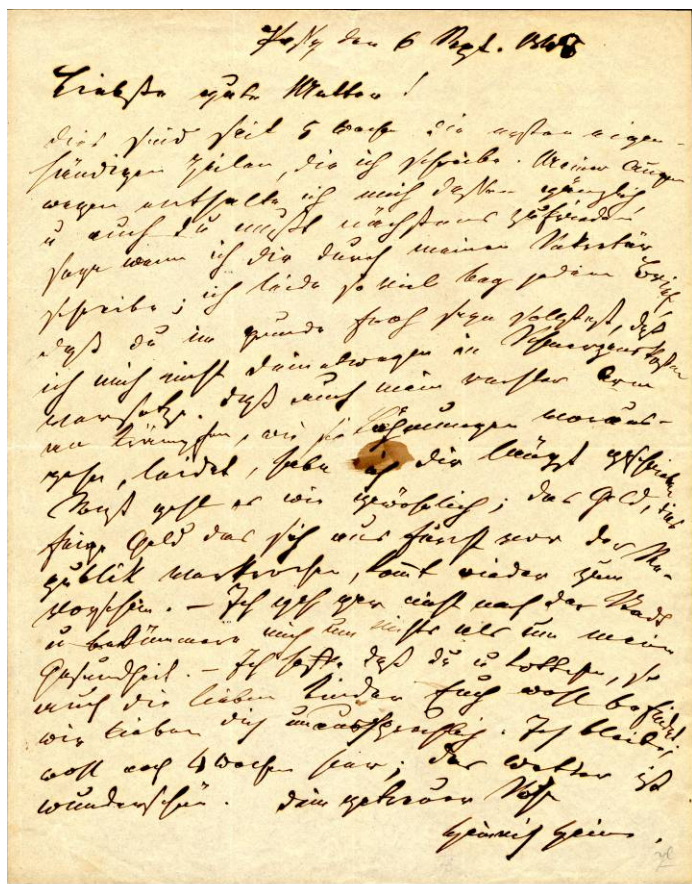 Passy den 6 Sept. 1848
Liebste gute Mutter!
Dies sind seit 5 Woche die ersten eigen-
händigen Zeilen, die ich schreibe. Meiner Augen
wegen enthalte ich mich dessen gänzlich
u auch du mußt nächstens zufrieden
seyn wenn ich dir durch meinen Sekretär
schreibe; ich leide so viel bey jedem Brief,
daß du im Grunde froh seyn solltest, daß
ich mich nicht deinetwegen in Schmerzenskosten
versetze. Daß auch mein rechter Arm
an Krämpfen, wie sie Lähmungen voraus-
gehn, leidet, habe ich dir längst geschrieben
Sonst geht es wie gewöhnlich; das Geld, das
feige Geld das sich aus Furcht vor der Re-
publik verkrochen, kömt wieder zum
Vorschein. – Ich geh gar nicht nach der Stadt
u bekümmere mich um nichts als um meine
Gesundheit. – Ich hoffe daß du u Lottchen, so
auch die lieben Kinder Euch wohl befindet;
wir lieben dich unaussprechlich. Ich bleibe
wohl noch 4 Wochen hier; das Wetter ist
wunderschön. Dein getreuer Sohn
Heinrich Heine.